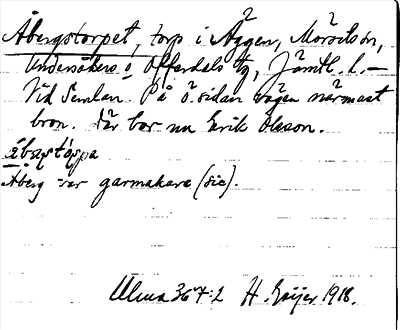 Åbergstorpet, torp i Äggen, Mörsilsn,
Undersåkers o Offerdals tg, Jämtl. l. —
Vid Semlan. På ö. sidan vägen närmast
bron. Där bor nu Erik Olsson.
Åberg var garmakare (sic).
Ulma 36:4:2 H. Geijer 1918.